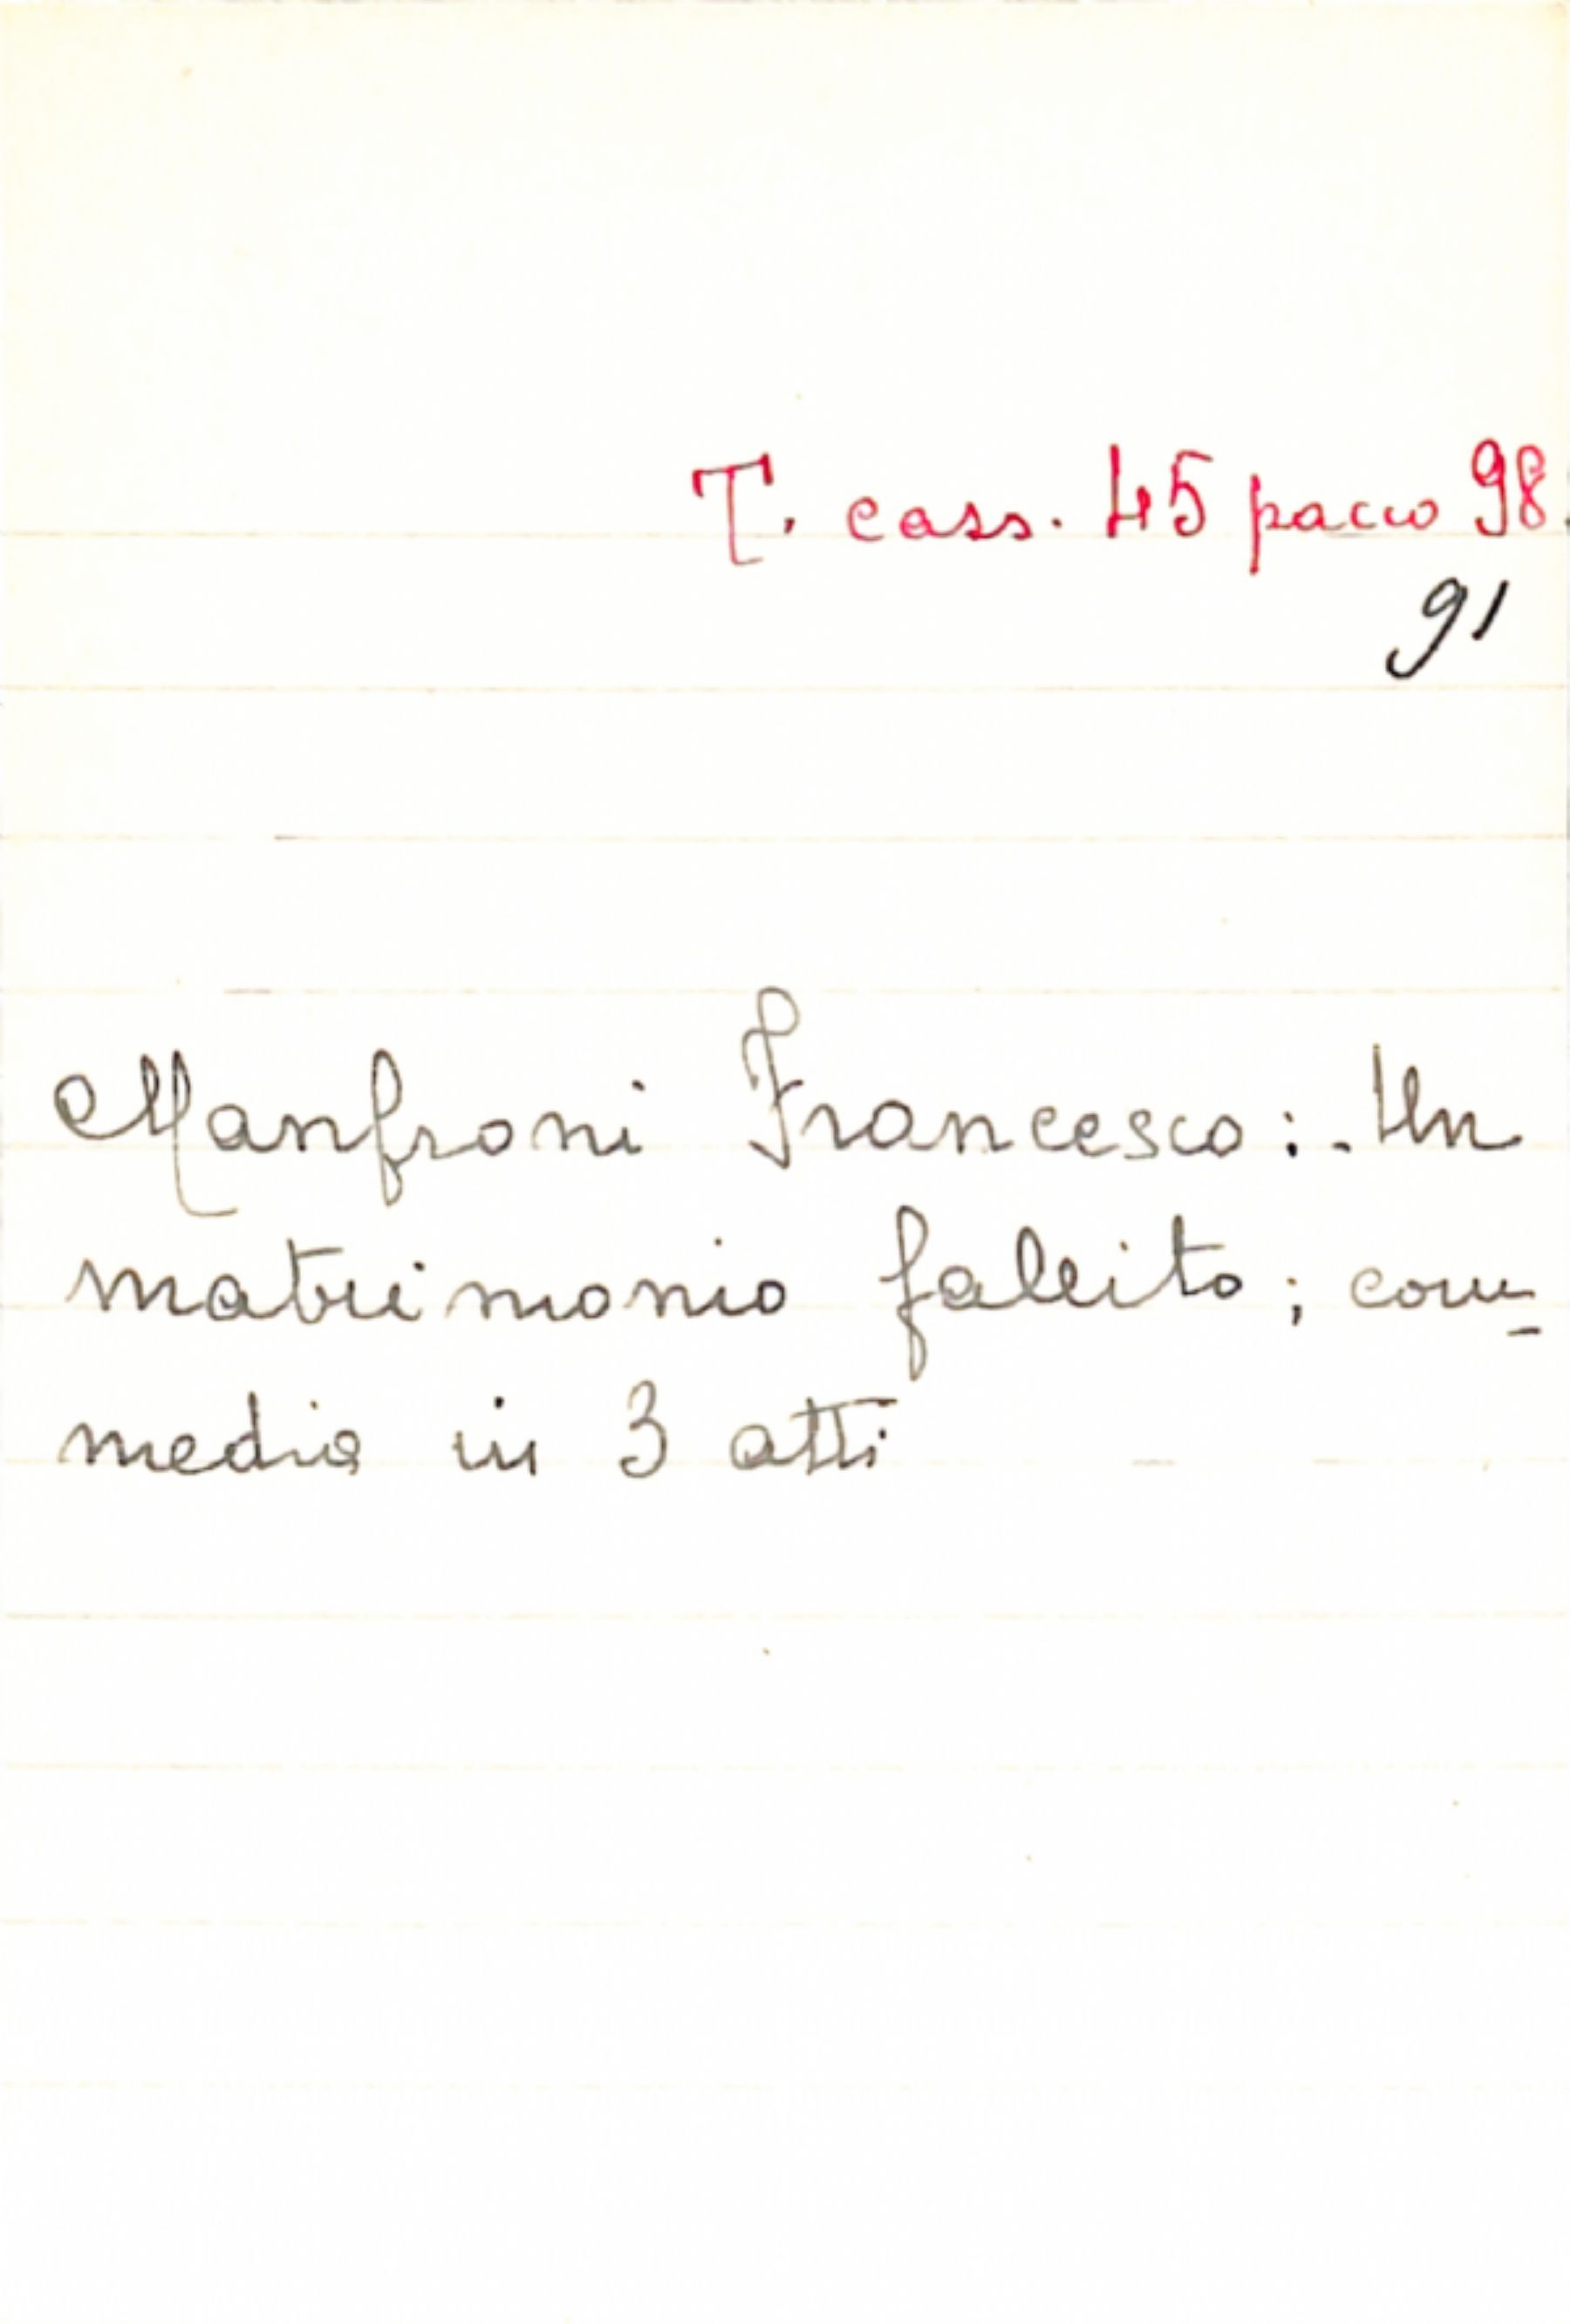 T. cass. 45 pacco 98.
91
Manfroni Francesco:. Un
matrimonio fallito; com-
media in 3 atti